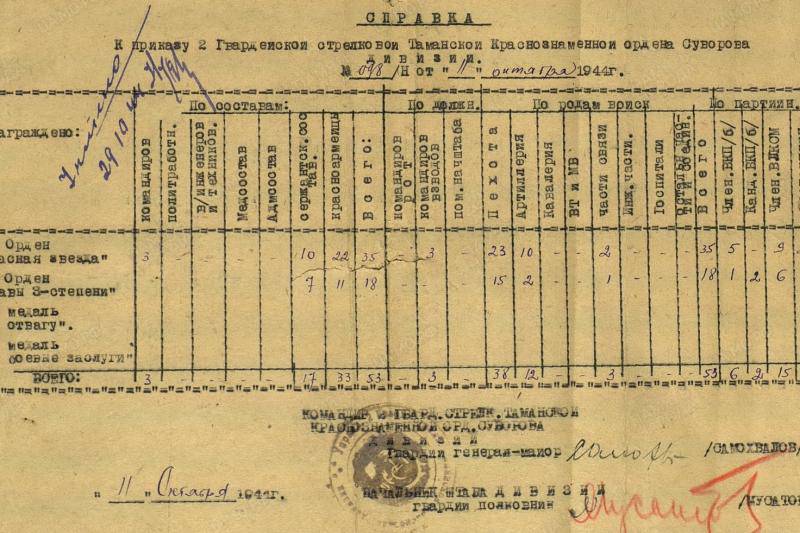 СПРАВКА
К приказу 2 Гвардейской стрелковой Таманской Краснознаменной ордена Суворова
ДИВИЗИИ.
№ 098/Н от "11" октября 1944г.
По составам: По должн. По родам войск По партийн.
аграждено: командиров политработн. в/инженеров и техников. Медсостав Адмсостав сержантск.состав. красноармейцы Всего: командиров рот командиров взводов пом.начштаба Пехота Артиллерия Кавалерия ВТ и МВ части связи Инж.части. Госпитали Всего Член.ВКП/б/ Канд.ВКП/б/ Член.ВЛКСМ
Орден
асная звезда" 3 - - - - 10 22 35 - 3 - 23 10 - - 2 - - - 35 5 - 9
Орден
авы 3-степени" - - - - - 7 11 18 - - - 15 2 - - 1 - - - 18 1 2 6
медаль
отвагу".
медаль
оевые заслуги"
ВСЕГО: 3 - - - - 17 33 53 - 3 - 38 12 - - 3 - - - 53 6 2 15
КОМАНДИР 2 ГВАРД.СТРЕЛК.ТАМАНСКОЙ
КРАСНОЗНАМЕННОЙ ОРД.СУВОРОВА
ДИВИЗИИ
Гвардии генерал-майор /САМОХВАЛОВ/
"11" Октября 1944г.
НАЧАЛЬНИК ШТАБА ДИВИЗИИ
гвардии полковник /МУСАТОВ